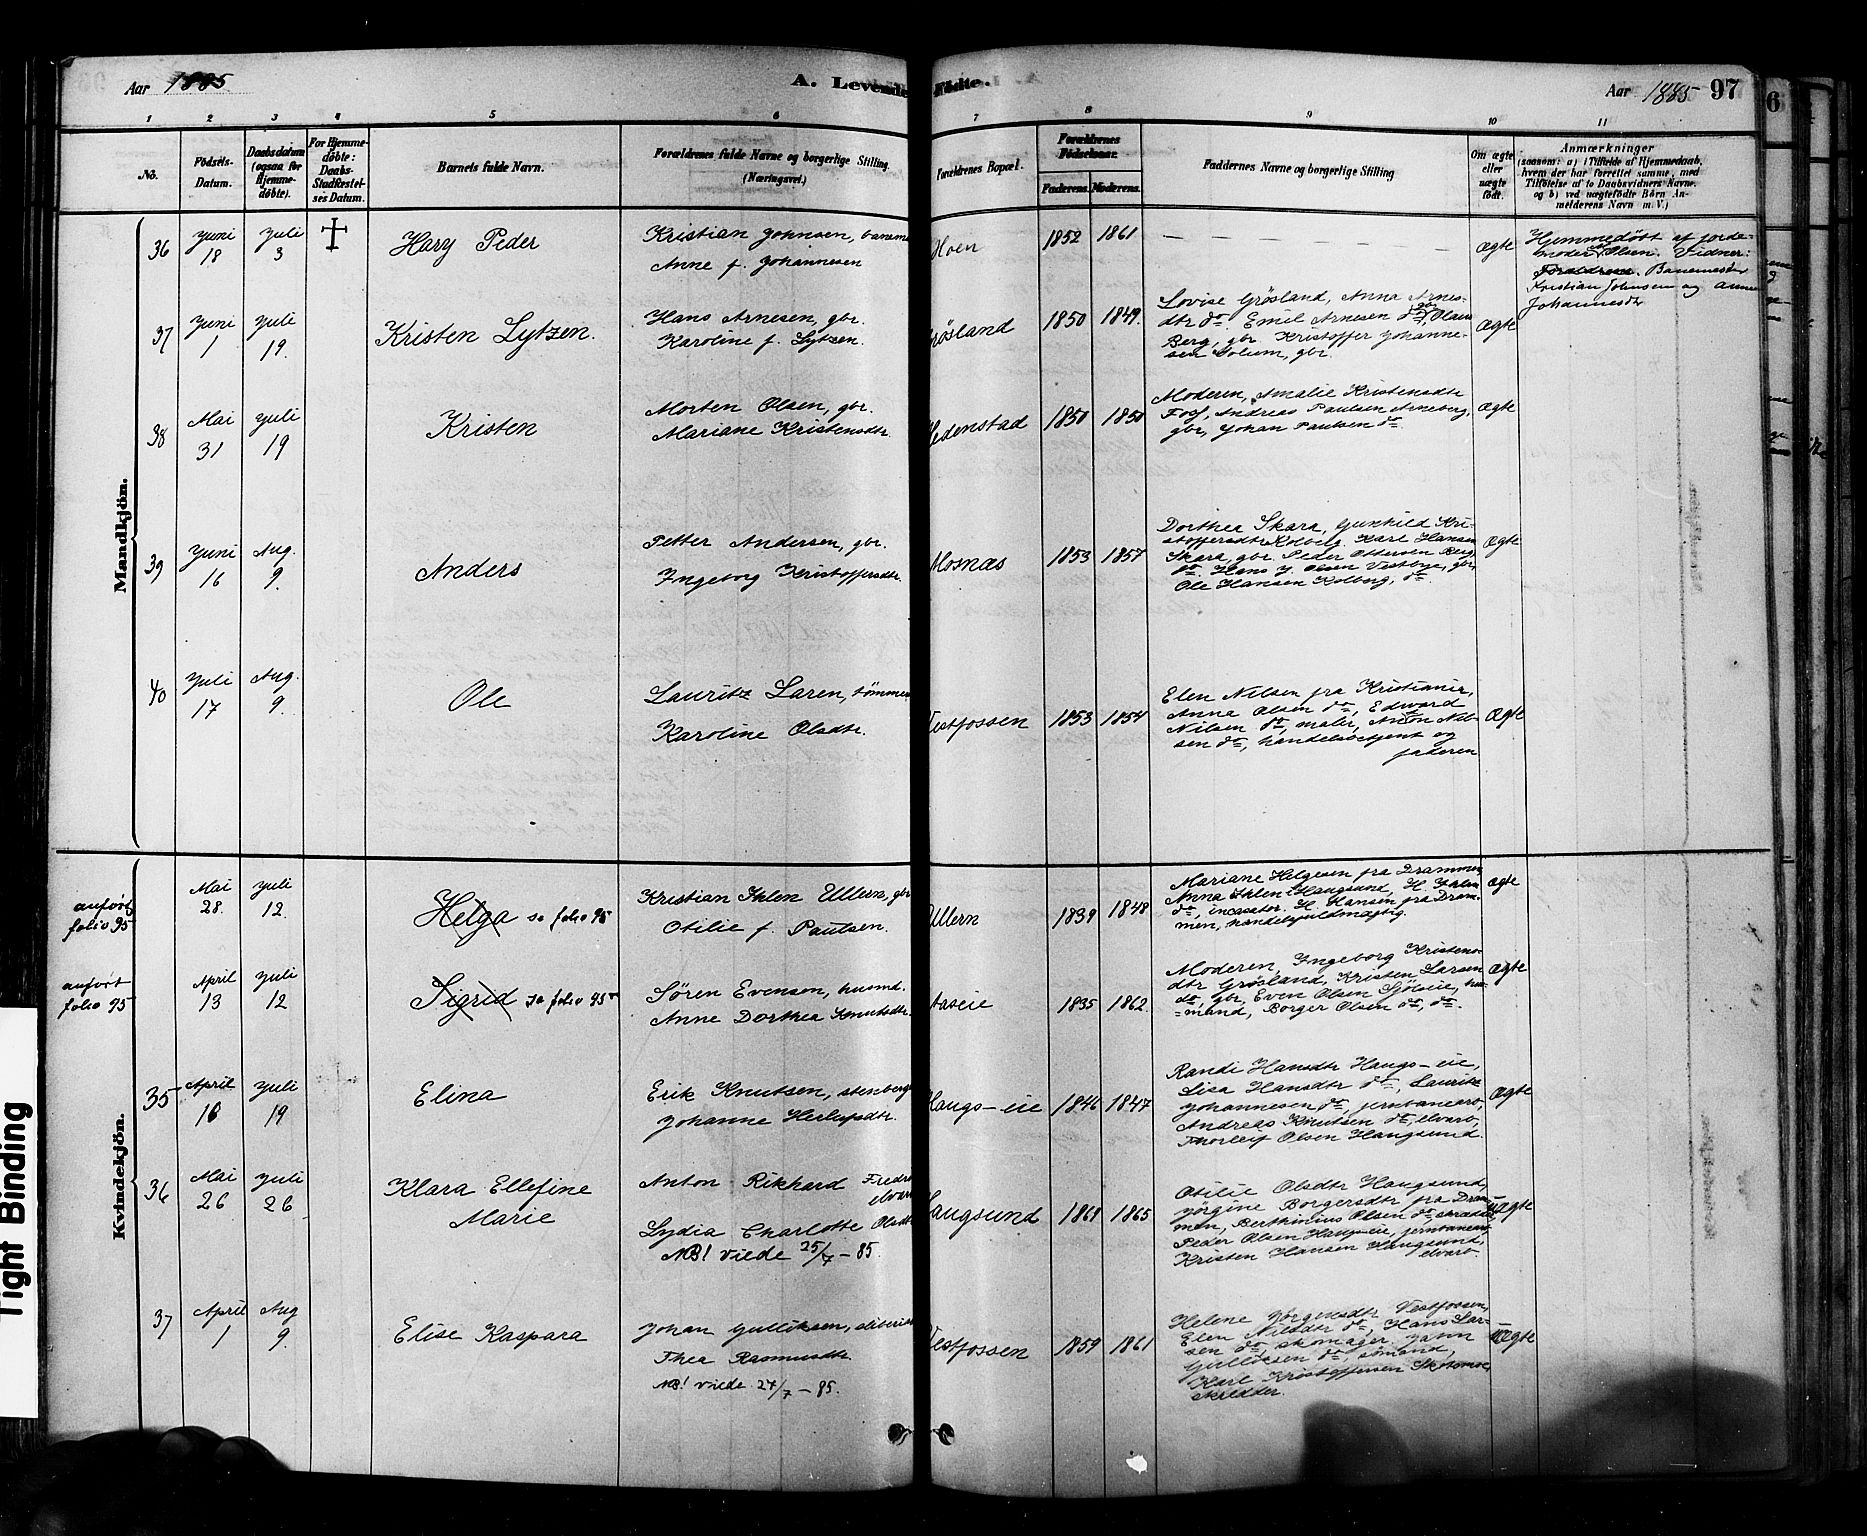 Aar 1885
A. Levende Fødte.
Aar 1885 97
1 2 3 4 5 6 7 8 9 10 11
No.
Fødsels-Datum.
Daabsdatum (ogsaa for Hjemme-døbte).
For Hjemme-døbte: Daabs-Stadfæstel-ses Datum.
Barnets fulde Navn.
Forældrenes fulde Navne og borgerlige Stilling.
(Næringsvei.)
Forældrenes Bopæl.
Forældrenes Fødselsaar.
Faderens. Moderens.
Faddernes Navne og borgerlige Stilling
Om ægte eller uægte født.
Anmærkninger
(saasom: a) i Tilfælde af Hjemmedaab, hvem der har forrettet samme, med Tilføielse af to Daabsvidners Navne, og b) ved uægtefødte Børn An-melderens Navn m. V.)
Mandkjön.
36 Juni 18 Juli 3 Hary Peder
Kristian Johnsen, baneme
Anne f. Johannesen
Hoen 1852 1861 — ægte
Hjemmedöbt af jorde-
moder Olsen. Vidner:
Forældrene. Banemester
Kristian Johnsen og Anne
Johannesdtr
37 Juni 1 Juli 19. Kristen Lytzen.
Hans Arnesen, gbr.
Karoline f. Lytzen.
Grösland 1850 1849.
Lovise Grösland, Anna Arnes-
dtr do. Emil Arnesen do, Olaus
Berg, gbr. Kristoffer Johanne-
sen Solum, gbr.
Ægte
38 Mai 31 Juli 19 Kristen
Morten Olsen, gbr.
Mariane Kristensdtr.
Hedenstad 1850 1850
Moderen, Amalie Kristensdtr
Fosf, Andreas Paulsen Arneberg,
gbr, Johan Paulsen do
Ægte
39 Juni 16 Aug. 9. Anders
Petter Andersen, gbr.
Ingeborg Kristoffersdtr.
Mosnæs 1853 1857
Dorthea Skara, Gunhild Kri-
stoffersdtr Kolberg, Karl Hansen
Skara, gbr. Peder Ottersen Berg,
do. Hans J. Olsen Vestbye, gbr,
Ole Hansen Kolberg, do.
Ægte
40 Juli 17 Aug. 9. Ole
Lauritz Laren, tömmer
Karoline Olsdtr.
Vestfossen 1853 1854
Elen Nilsen fra Kristiania,
Anna Olsen do, Edward
Nilsen do, maler, Anton Nil-
sen do, handelsbetjent og
faderen
Ægte
Kvindekjön.
anført folio 95 Mai 28. Juli 12. Helga se folio 95
Kristian Ihlen Ullern, gbr
Otilie f. Paulsen.
Ullern 1839 1848
Mariane Helgesen fra Drammen
Anna Ihlen Haugsund, H. Ihlen
do, incasator. H. Hansen fra Dram-
men, handelsfuldmægtig.
Ægte
anført folio 95 April 13 Juli 12 Sigrid se folio 95
Sören Evensen, husmd.
Anne Dorthea Knutsdtr.
aaseie 1835 1862.
Moderen, Ingeborg Kristens-
dtr Grösland, Kristen Larsen
do, gbr, Even Olsen Sjöleie, hus-
mand, Borger Olsen do, do.
Ægte
35 April 16 Juli 19 Elina
Erik Knutsen, stenberg
Johanne Herlufsdtr.
Haugs-eie 1846 1847
Randi Hansdtr Haugs-eie,
Lisa Hansdtr do, Lauritz
Johannesen do, jernbanearb,
Andreas Knutsen do, elvarb,
Thorleif Olsen Haugsund.
Ægte
36 Mai 26 Juli 26 Klara Ellefine
Marie
Anton Rikhard Fredr
elvarb
Lydia Charlotte Olsdtr
NB! viede 25/7 - 85.
Haugsund 1861 1865
Otilie Olsdtr Haugsund,
Jörgine Borgersdtr fra Dram-
men, Berthinius Olsen do, skrædder,
Peder Olsen Haugseie, jernbanearb
Kristen Hansen Haugsund,
elvarb.
Uægte
37 April 1 Aug 9. Elise Kaspara
Johan Gulliksen, sliberiarb
Thea Rasmusdtr.
NB! viede 24/7 - 85.
Vestfossen 1859 1861
Helene Jörgensdtr Vestfossen,
Elen Nilsdtr do, Hans Lar-
sen do, skomager. Jahn
Gulliksen do, sömand,
Karl Kristoffersen
skrædder.
Uægte
Tight Binding